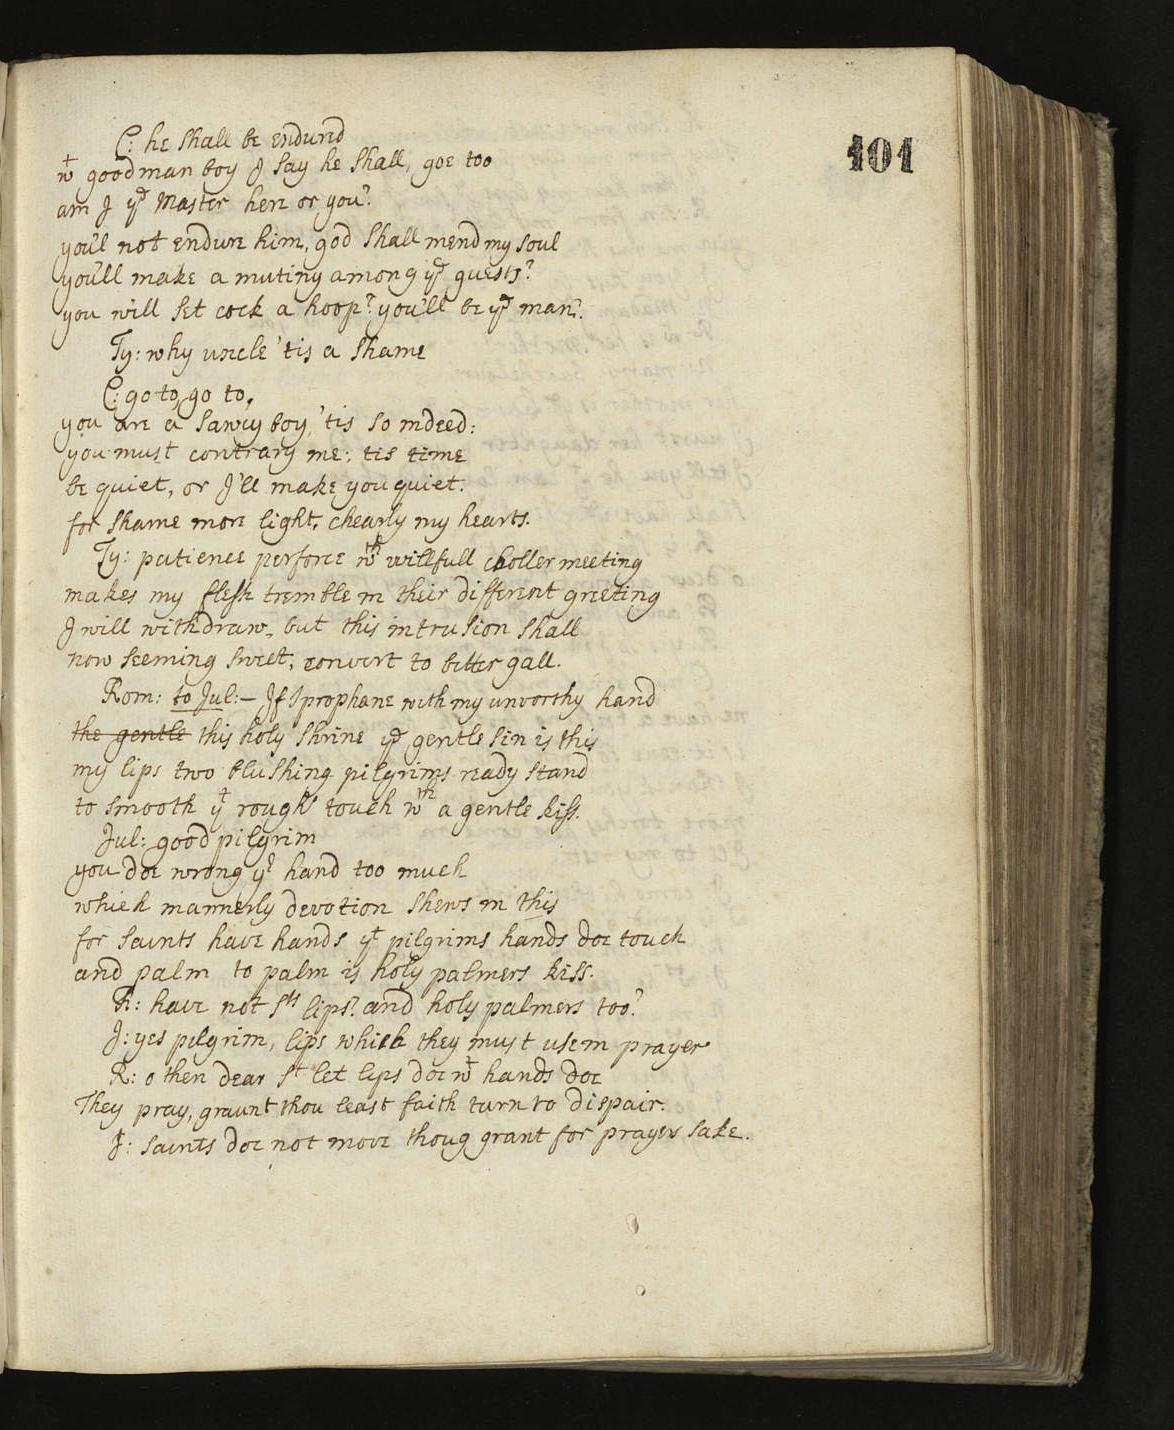 101
C: he shall be endured
wt goodman boy I say he shall, goe too
am I ye Master here or you?
you'l not endure him, god shall mend my soul
you'll make a mutiny among ye guests?
you will set cock a hoop? you'll be ye man?
Ty: why uncle 'tis a shame
C: go to, go to,
you are a sawcy boy, 'tis so indeed:
you must contrary me: tis time
be quiet, or I'll make you quiet.
for shame more light, chearly my hearts.
Ty: patience perforce wth willfull choller meeting
makes my flesh tremble in their different greeting
I will withdraw, but this intrusion shall
now seeming sweet, convert to bitter gall.
Rom: to Jul:- If I prophane with my unworthy hand
the gentle this holy shrine ye gentle sin is this
my lips two blushing pilgrims ready stand
to smooth yt rough touch wth a gentle kiss.
Jul: good pilgrim
you doe wrong yr hand too much
which mannerly devotion shews in this
for saints have hands yt pilgrims hands doe touch
and palm to palm is holy palmers kiss.
R: have not sts lips? and holy palmers too?
J: yes pilgrim, lips which they must use in prayer
R: o then dear st let lips doe wt hands doe
They pray, graunt thou least faith turn to dispair.
J: saints doe not move thoug grant for prayer sake.